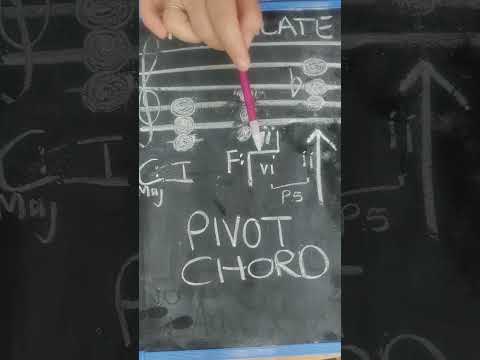 LATE
b
C: I
F: vi ii
Maj
P5
PIVOT
CHORD